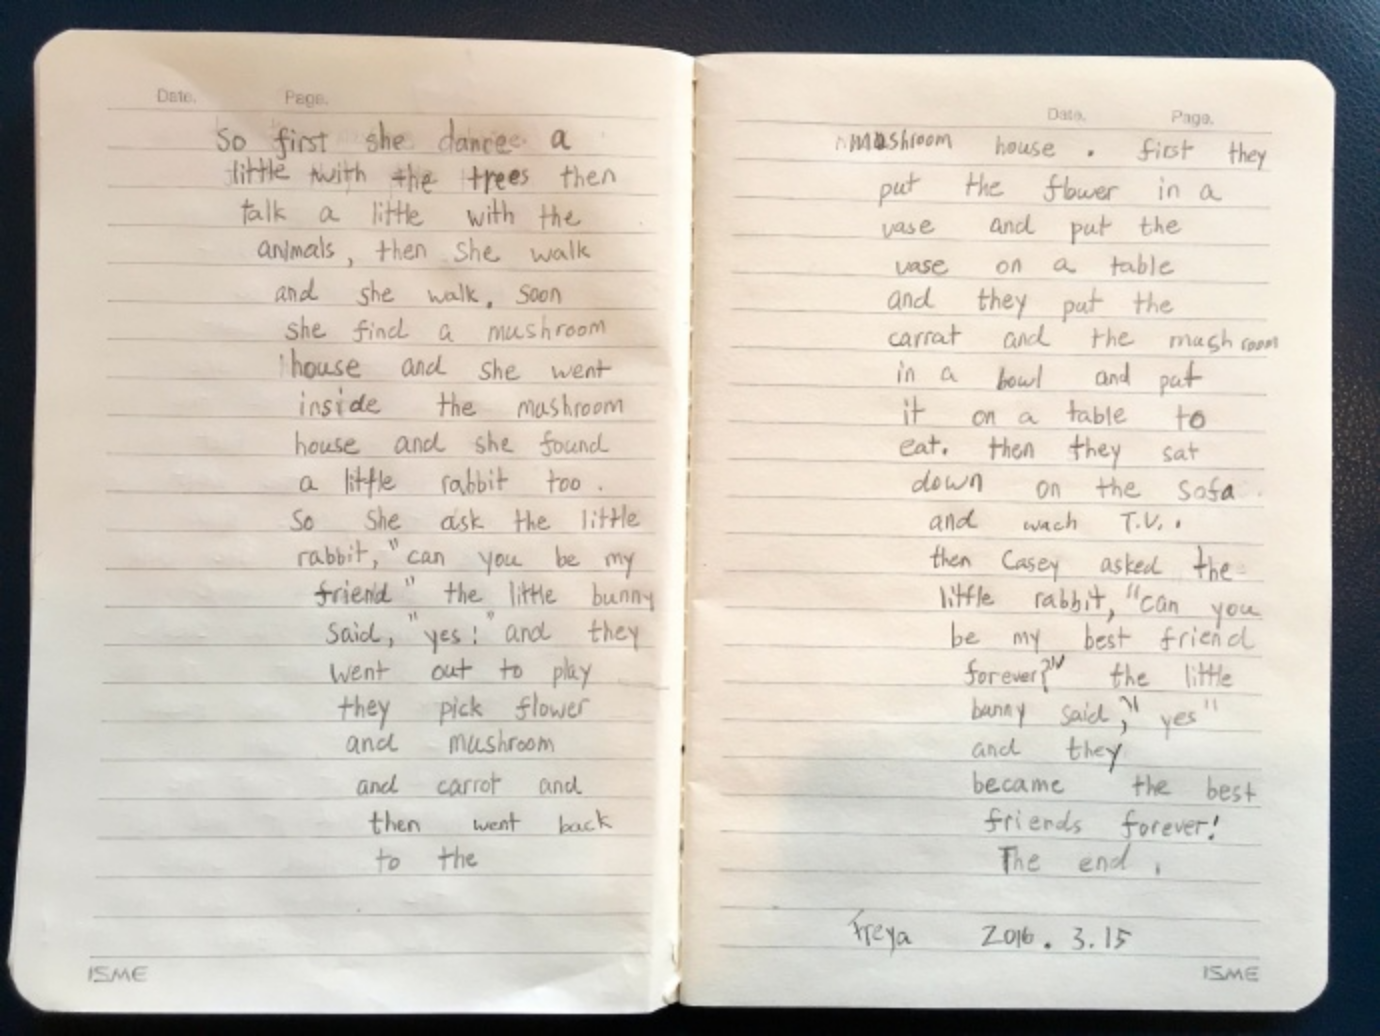 Date. Page.
So first she dance a
little with the trees then
talk a little with the
animals, then she walk
and she walk. Soon
she find a mushroom
house and she went
inside the mashroom
house and she found
a little rabbit too.
So she ask the little
rabbit, "can you be my
friend" the little bunny
said, "yes!" and they
went out to play
they pick flower
and mushroom
and carrot and
then went back
to the
ISME
Date. Page.
mushroom house. first they
put the flower in a
vase and put the
vase on a table
and they put the
carrat and the mushroom
in a bowl and put
it on a table to
eat. then they sat
down on the sofa
and wach T.V..
then Casey asked the
little rabbit, "can you
be my best friend
forever?" the little
bunny said, "yes"
and they
became the best
friends forever!
The end.
Freya 2016.3.15
ISME